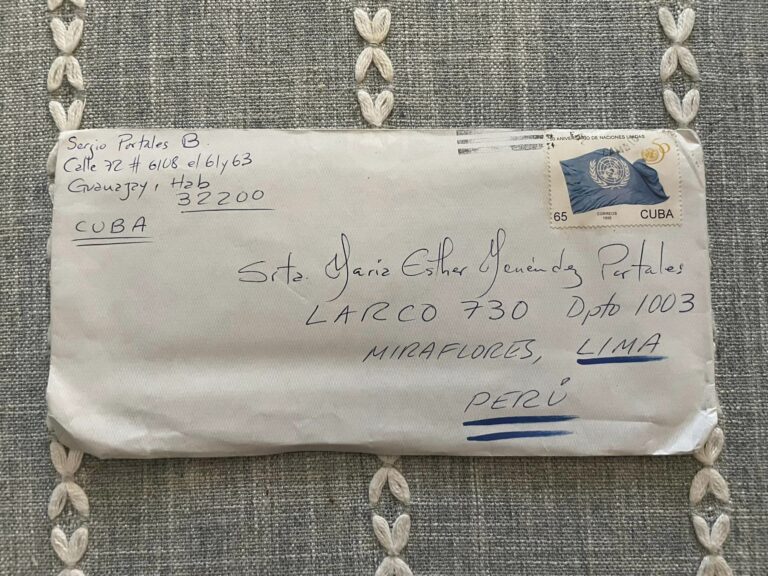 Sergio Portales B.
Calle 72 # 6108 e/ 61 y 63
Guanajay, Hab
32200
CUBA
50 ANIVERSARIO DE NACIONES UNIDAS
65
CORREOS
1995
CUBA
Srta. María Esther Menéndez Portales
LARCO 730 Dpto 1003
MIRAFLORES, LIMA
PERÚ